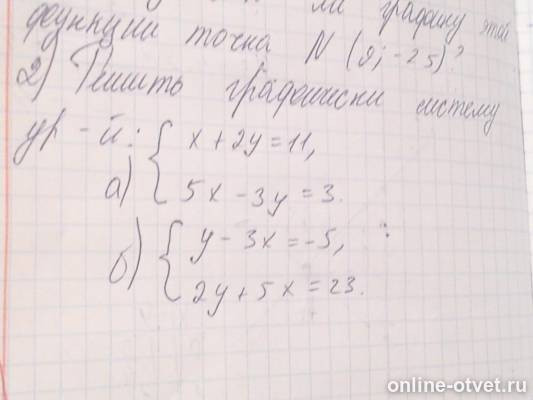 ли графику этой
функции точка N (9; -25)?
2) Решить графически систему
ур-й:
а) { x + 2y = 11,
5x - 3y = 3.
б) { y - 3x = -5,
2y + 5x = 23.
online-otvet.ru